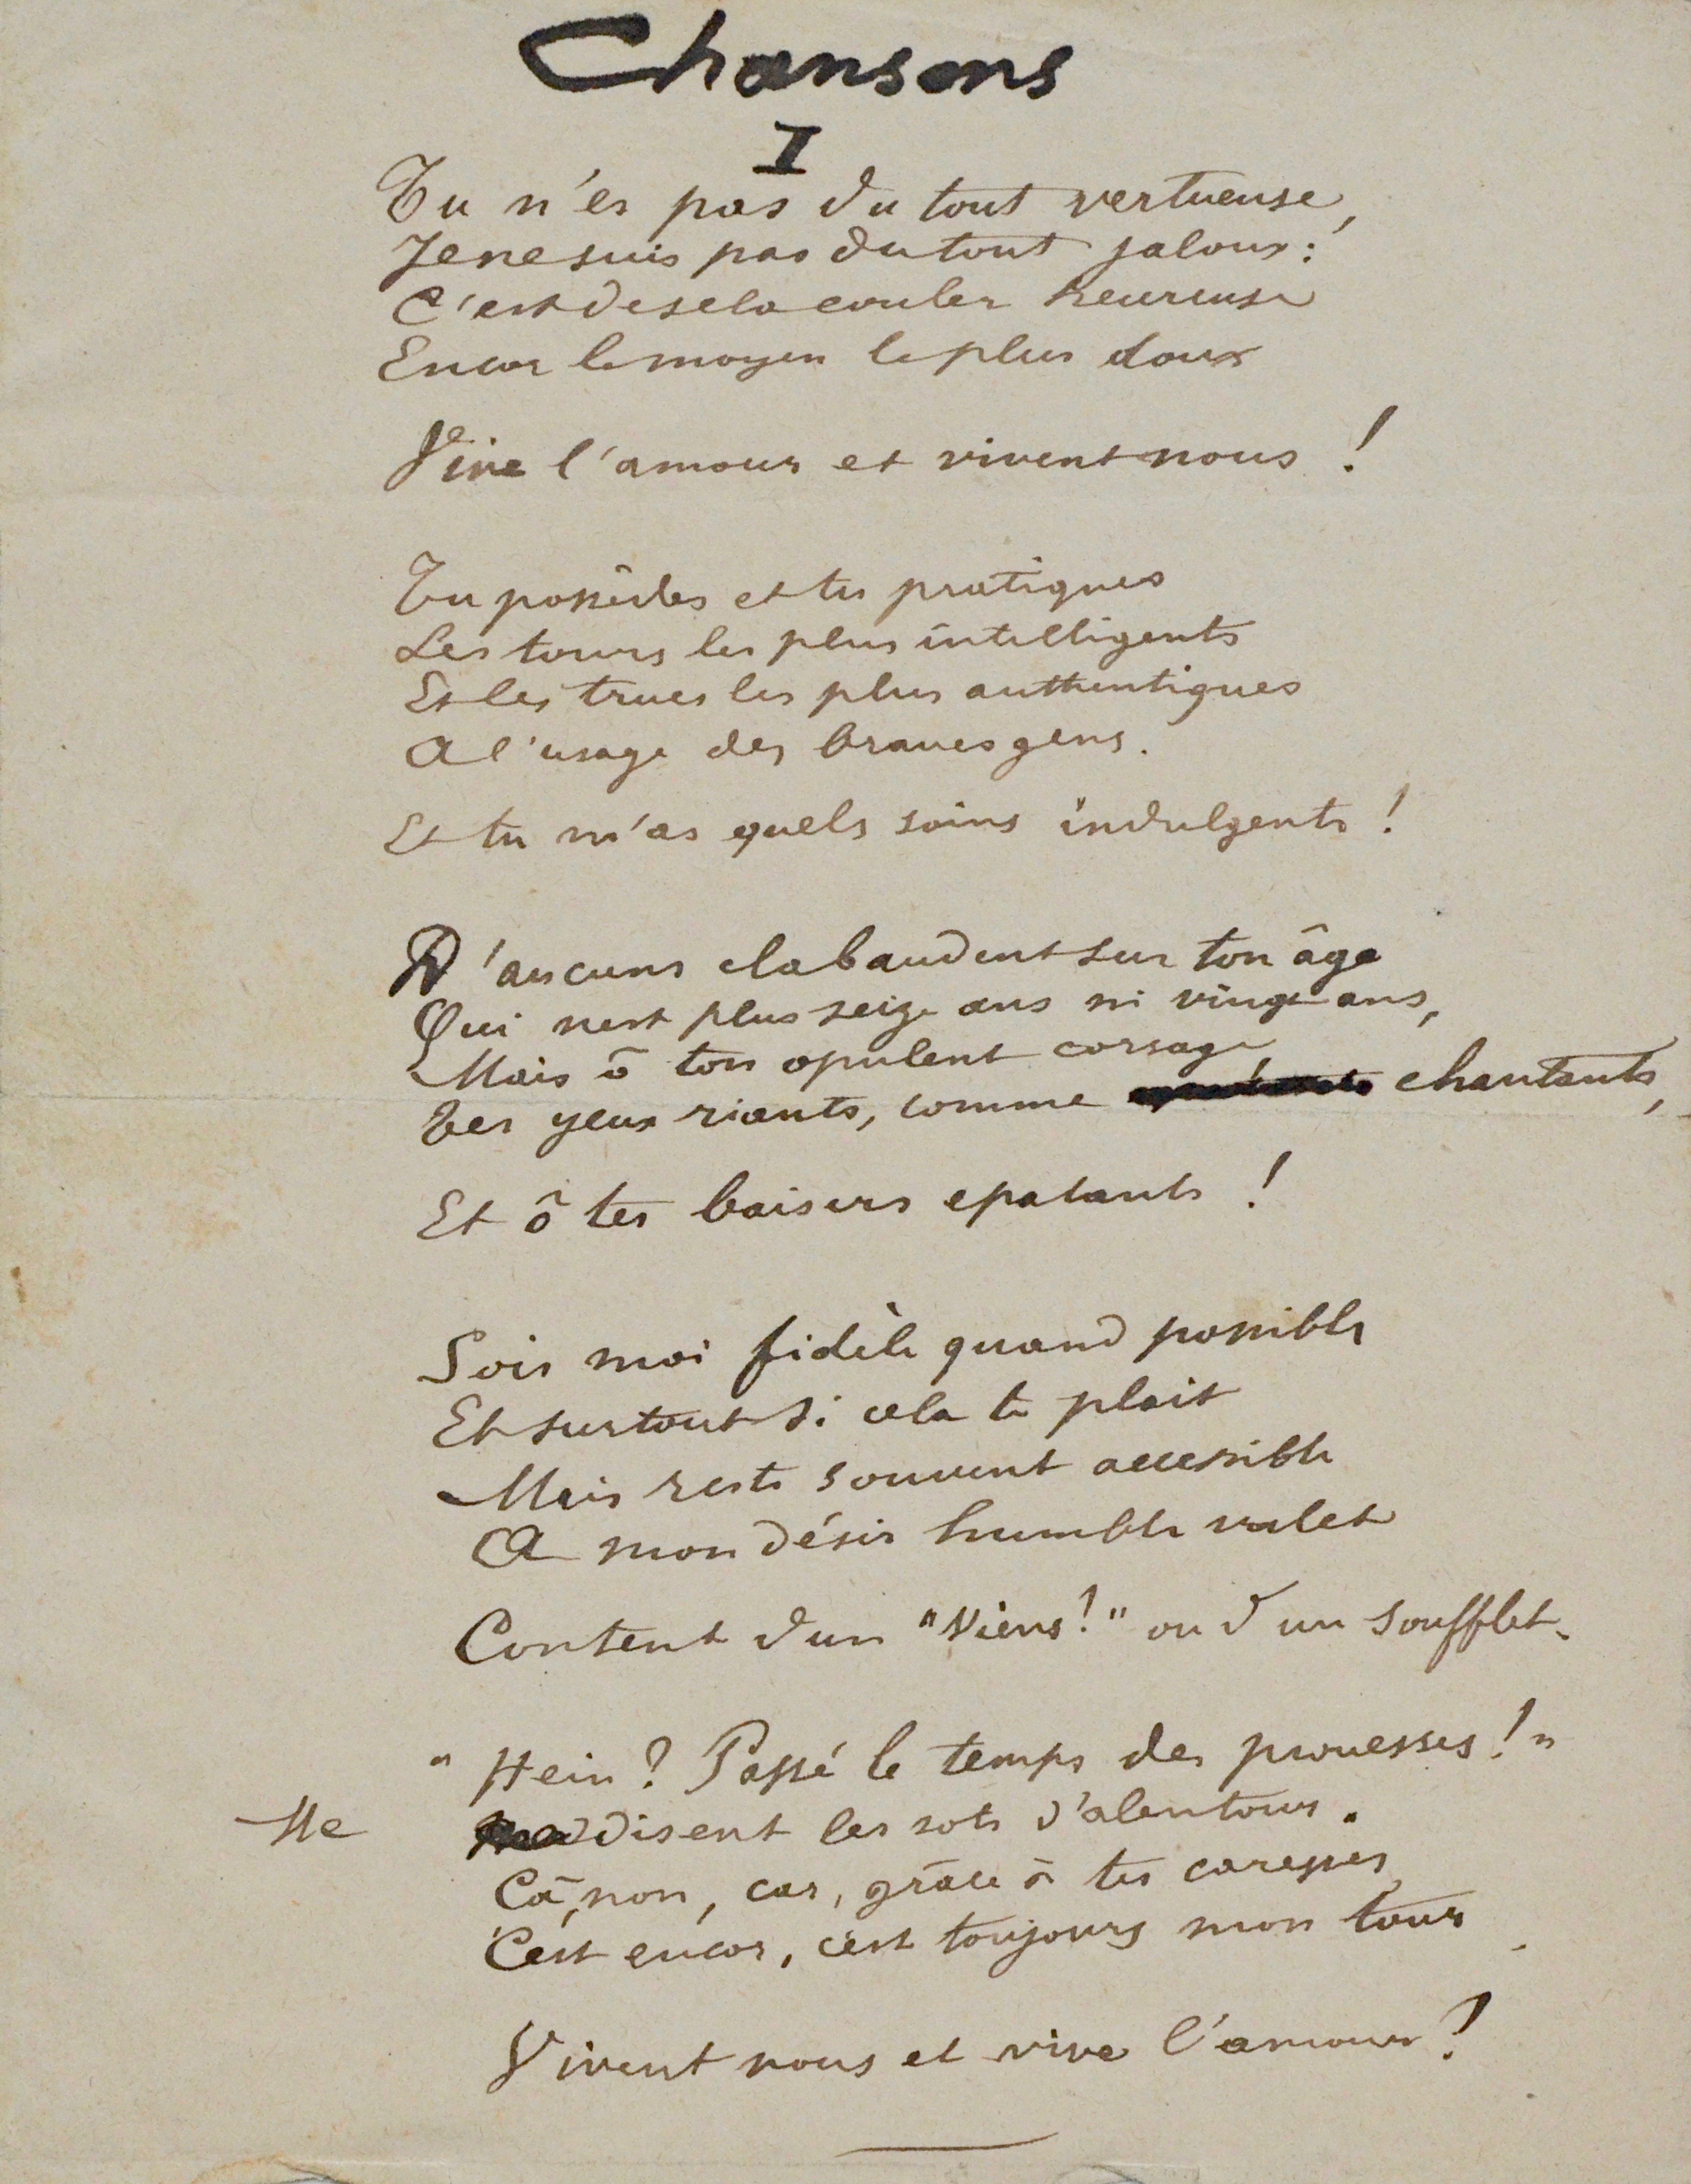 Chansons
I
Tu n'es pas du tout vertueuse,
Je ne suis pas du tout jaloux :
C'est de se la couler heureuse
Encor le moyen le plus doux
Vive l'amour et vivent nous !
Tu possèdes et tu pratiques
Les tours les plus intelligents
Et les trucs les plus authentiques
A l'usage des braves gens.
Et tu m'as quels soins indulgents !
D'aucuns clabaudent sur ton âge
Qui nest plus seize ans ni vingt ans,
Mais ô ton opulent corsage,
Tes yeux riants, comme chantants,
Et ô tes baisers epatants !
Sois moi fidèle quand possible
Et surtout si cela te plait
Mais reste souvent accessible
A mon désir humble valet
Content d'un "Viens !" ou d'un soufflet.
" Hein ? Passé le temps des prouesses ! "
Me disent les sots d'alentour.
Cà, non, car, grâce à tes caresses
C'est encor, c'est toujours mon tour.
Vivent nous et vive l'amour !